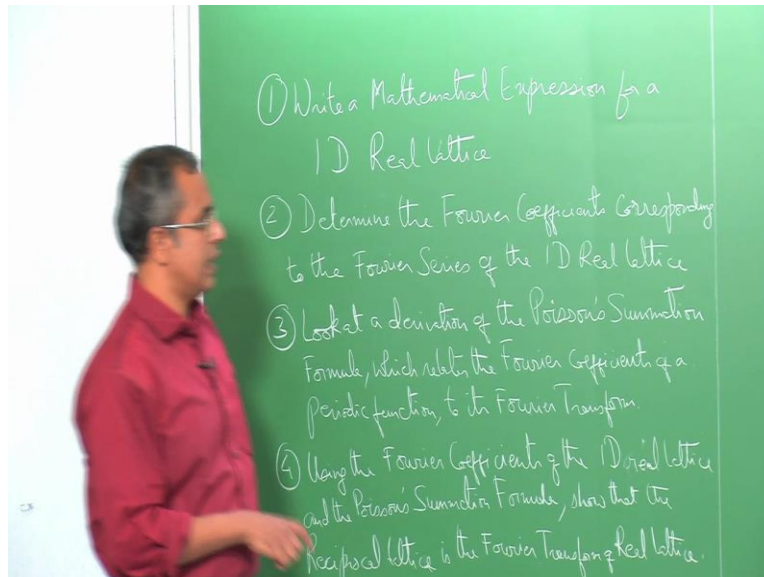 ① Write a Mathematical Expression for a
1D Real lattice
② Determine the Fourier Coefficients Corresponding
to the Fourier Series of the 1D Real lattice
③ Look at a derivation of the Poisson's Summation
Formula, which relates the Fourier Coefficients of a
Periodic function, to its Fourier Transform.
④ Using the Fourier Coefficients of the 1D real lattice
and the Poisson's Summation Formula, show that the
Reciprocal lattice is the Fourier Transform of Real lattice.